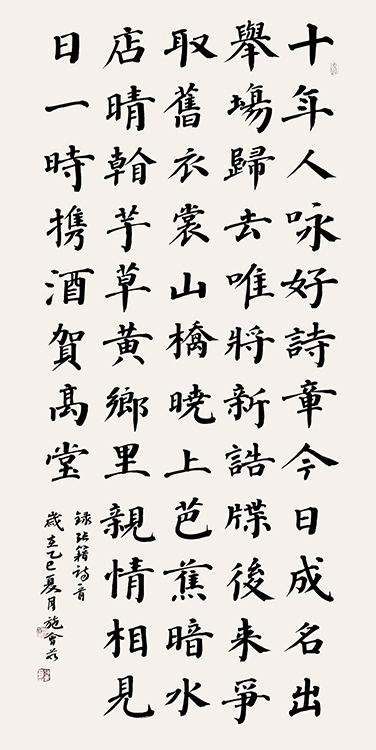 十年人咏好詩章今日成名出
舉塲歸去唯將新誥牒後来爭
取舊衣裳山橋曉上芭蕉暗水
店晴看芋草黄鄉里親情相見
日一時携酒賀髙堂
録张籍詩首
歲在乙巳夏月施會